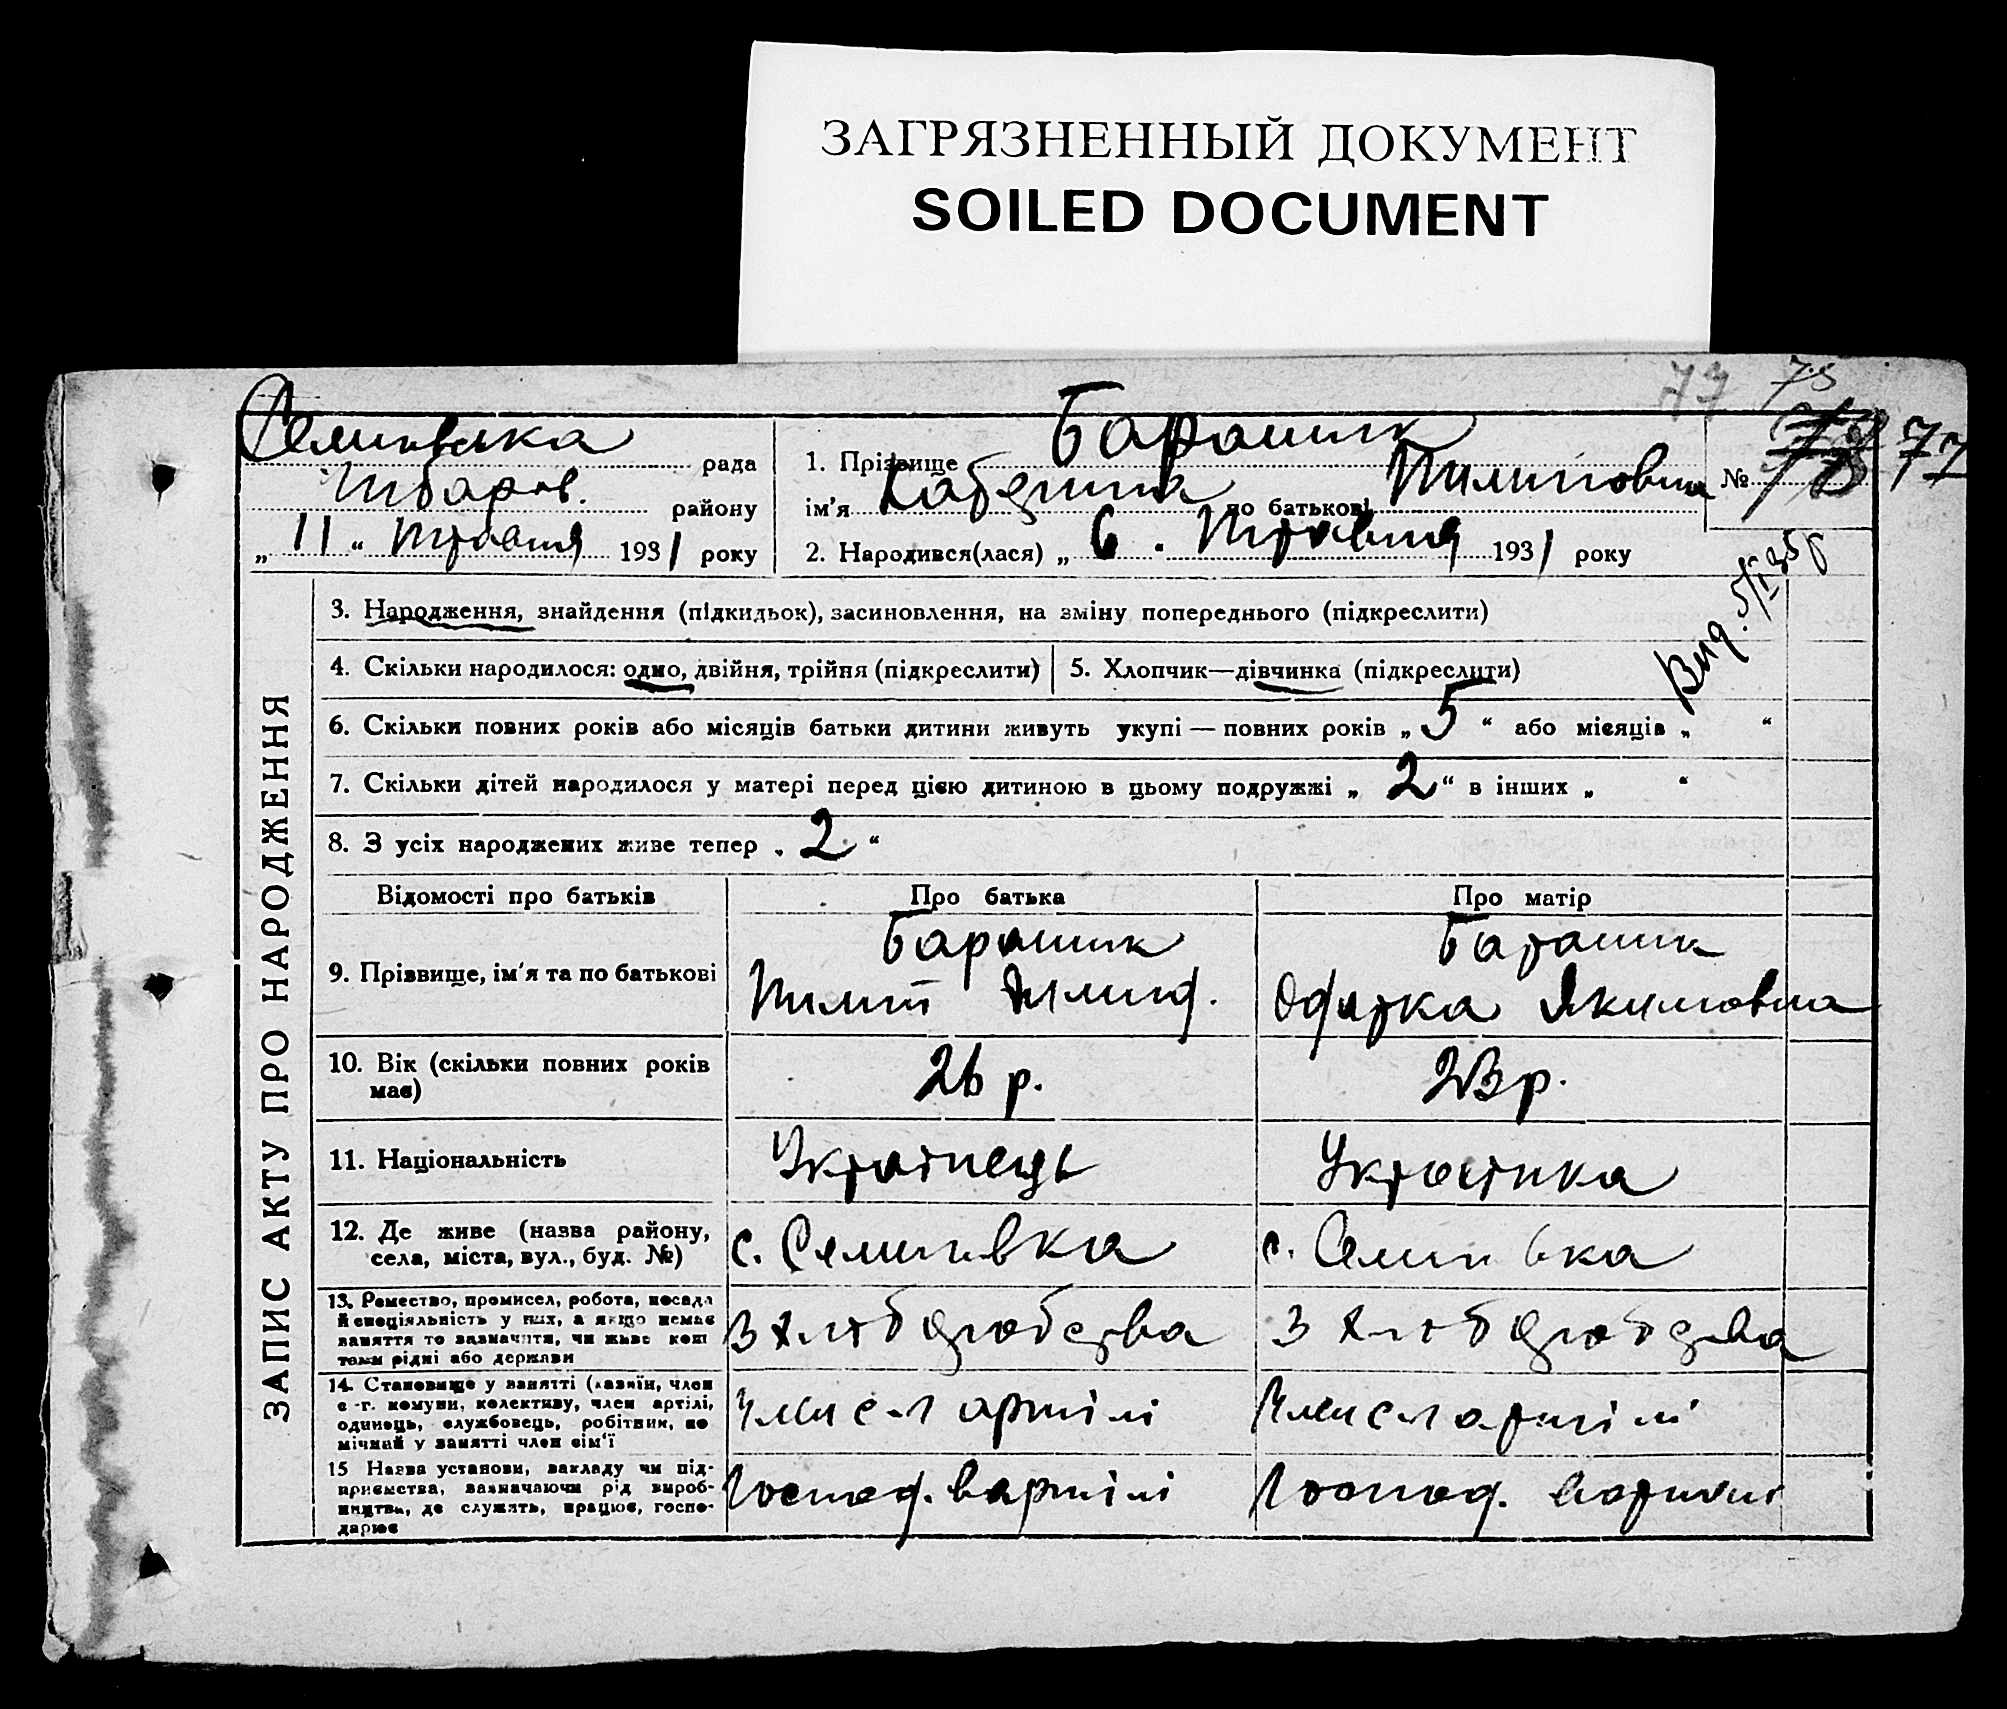 ЗАГРЯЗНЕННЫЙ ДОКУМЕНТ
SOILED DOCUMENT
77 73
рада
району
„ 11 “ Травня 1931 року
1. Прізвище Барашик
ім'я Катерина по батькові Пилиповна
2. Народився(лася) „ 6 “ Травня 1931 року
№ 77
Вид. 5/I 35 р
ЗАПИС АКТУ ПРО НАРОДЖЕННЯ
3. Народження, знайдення (підкидьок), засиновлення, на зміну попереднього (підкреслити)
4. Скільки народилося: одно, двійня, трійня (підкреслити)
5. Хлопчик—дівчинка (підкреслити)
6. Скільки повних років або місяців батьки дитини живуть укупі — повних років „ 5 “ або місяців „ “
7. Скільки дітей народилося у матері перед цією дитиною в цьому подружжі „ 2 “ в інших „ “
8. З усіх народжених живе тепер „ 2 “
Відомості про батьків
Про батька
Про матір
9. Прізвище, ім'я та по батькові
Барашик
Пилип
Барашик
Одарка Якимовна
10. Вік (скільки повних років
має)
26 р.
23 р.
11. Національність
Українець
Українка
12. Де живе (назва району,
села, міста, вул., буд. №)
с. Семинівка
с. Семинівка
13. Ремество, промисел, робота, посада
й спеціяльність у них, а якщо немає
заняття то зазначити, чи живе кош
тами рідні або держави
З хліборобства
З хліборобства
14. Становище у занятті (хазяїн, член
с.-г. комуни, колективу, член артілі,
одинець, службовець, робітник, по
мічний у занятті член сім'ї
Член артілі
Член артілі
15 Назва установи, закладу чи під-
приємства, зазначаючи рід вироб-
ництва, де служить, працює, госпо-
дарює
Господ. в артілі
Господ. в артілі